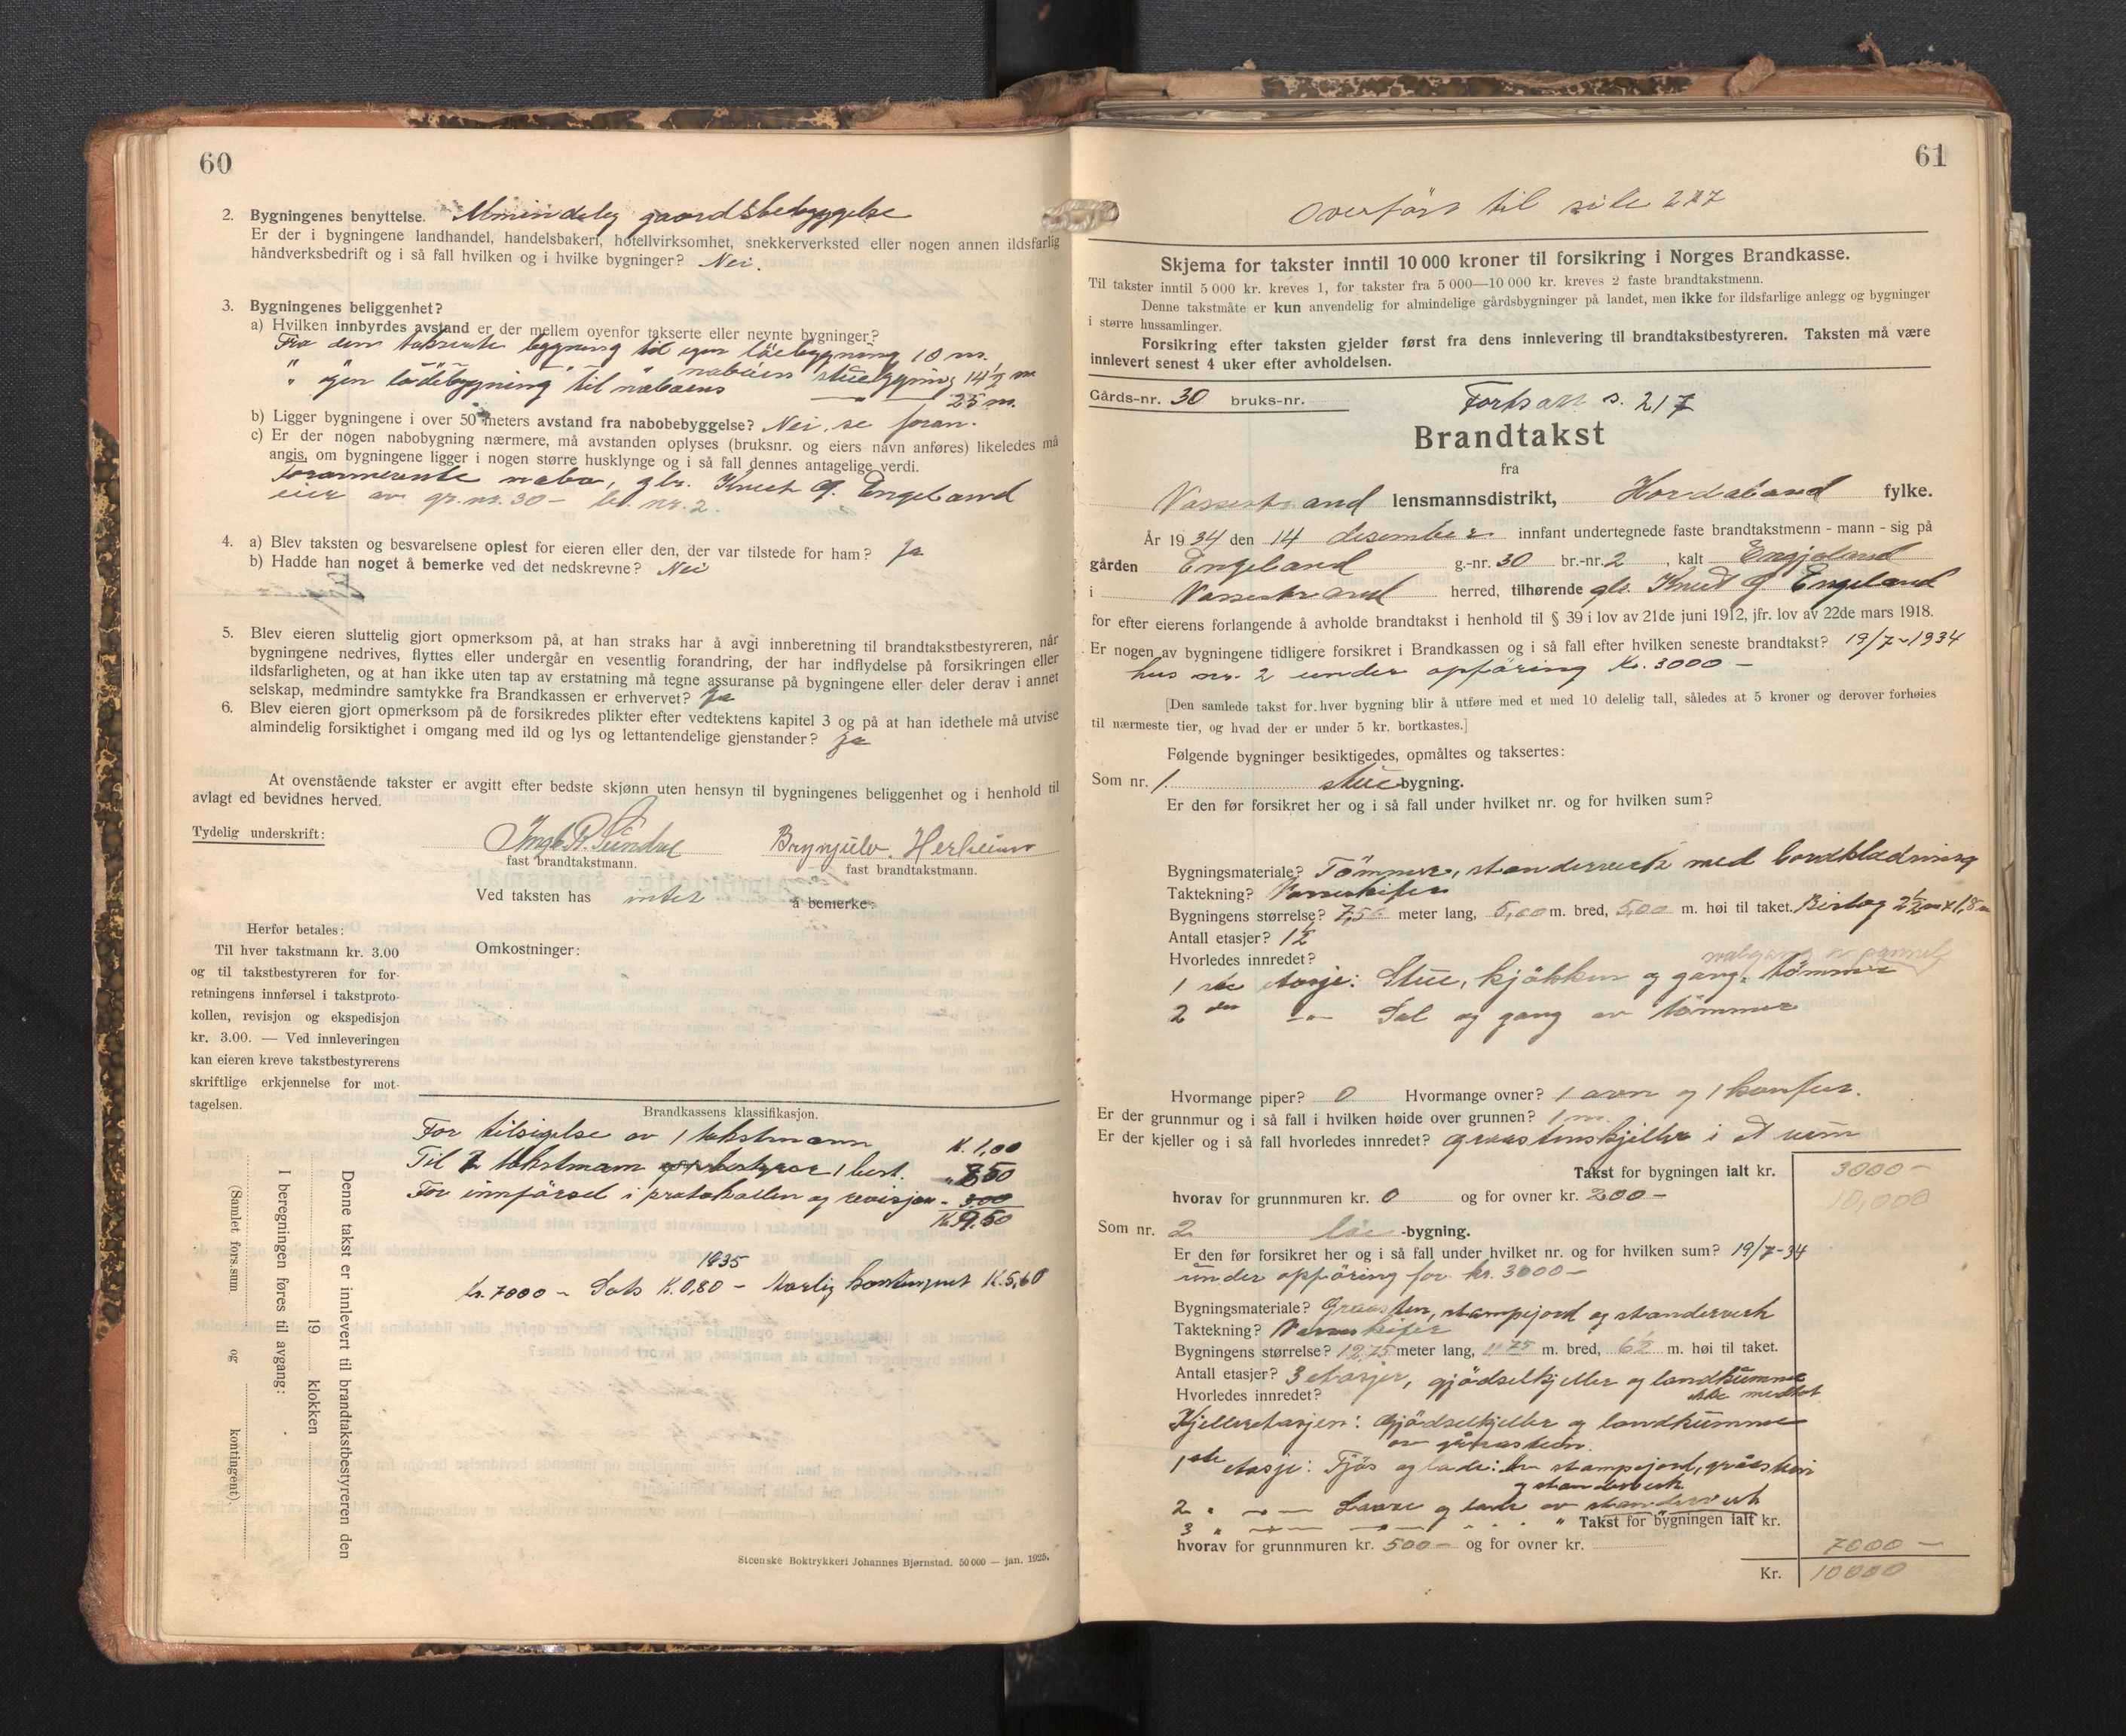 60
2. Bygningenes benyttelse. Almindelig gaardsbebyggelse
Er der i bygningene landhandel, handelsbakeri, hotellvirksomhet, snekkerverksted eller nogen annen ildsfarlig
håndverksbedrift og i så fall hvilken og i hvilke bygninger? Nei.
3. Bygningenes beliggenhet?
a) Hvilken innbyrdes avstand er der mellem ovenfor takserte eller nevnte bygninger?
Fra den takserte bygning til egen löebygning 10 m.
" " " " naboens stuebygning 14½ m
" egen lödebygning til naboens — " — 25 m.
b) Ligger bygningene i over 50 meters avstand fra nabobebyggelse? Nei, se foran.
c) Er der nogen nabobygning nærmere, må avstanden oplyses (bruksnr. og eiers navn anføres) likeledes må
angis, om bygningene ligger i nogen større husklynge og i så fall dennes antagelige verdi.
Forannevnte nabo, gbr. Knut G. Engeland
eier av gr. nr. 30 – br. nr. 2.
4. a) Blev taksten og besvarelsene oplest for eieren eller den, der var tilstede for ham? Ja
b) Hadde han noget å bemerke ved det nedskrevne? Nei
5. Blev eieren sluttelig gjort opmerksom på, at han straks har å avgi innberetning til brandtakstbestyreren, når
bygningene nedrives, flyttes eller undergår en vesentlig forandring, der har indflydelse på forsikringen eller
ildsfarligheten, og at han ikke uten tap av erstatning må tegne assuranse på bygningene eller deler derav i annet
selskap, medmindre samtykke fra Brandkassen er erhvervet? Ja
6. Blev eieren gjort opmerksom på de forsikredes plikter efter vedtektens kapitel 3 og på at han idethele må utvise
almindelig forsiktighet i omgang med ild og lys og lettantendelige gjenstander? Ja
At ovenstående takster er avgitt efter bedste skjønn uten hensyn til bygningenes beliggenhet og i henhold til
avlagt ed bevidnes herved.
Tydelig underskrift: Brynjulv Herheim
fast brandtakstmann. fast brandtakstmann.
Ved taksten has intet å bemerke:
Herfor betales:
Til hver takstmann kr. 3.00
og til takstbestyreren for for-
retningens innførsel i takstproto-
kollen, revisjon og ekspedisjon
kr. 3.00. — Ved innleveringen
kan eieren kreve takstbestyrerens
skriftlige erkjennelse for mot-
tagelsen.
Omkostninger:
Brandkassens klassifikasjon.
For tilsigelse av 1 takstmann K. 1,00
Til 2 takstmann 1 best.
For innförsel i protokollen og revisjon - 3.00
Kr. 9.50
1935
Kr. 7000 – Sats K. 0,80 – Aarlig kontingent K. 5,60
Denne takst er innlevert til brandtakstbestyreren den
19 klokken
I beregningen føres til avgang:
(Samlet fors.sum og kontingent)
Steenske Boktrykkeri Johannes Bjørnstad. 50 000 — jan. 1925.
61
Overfört til side 217
Skjema for takster inntil 10 000 kroner til forsikring i Norges Brandkasse.
Til takster inntil 5 000 kr. kreves 1, for takster fra 5 000—10 000 kr. kreves 2 faste brandtakstmenn.
Denne takstmåte er kun anvendelig for almindelige gårdsbygninger på landet, men ikke for ildsfarlige anlegg og bygninger
i større hussamlinger.
Forsikring efter taksten gjelder først fra dens innlevering til brandtakstbestyreren. Taksten må være
innlevert senest 4 uker efter avholdelsen.
Gårds-nr. 30 bruks-nr. Fortsatt s. 217
Brandtakst
fra
Vossestrand lensmannsdistrikt, Hordaland fylke.
År 1934 den 14 desember innfant undertegnede faste brandtakstmenn - mann - sig på
gården Engeland g.-nr. 30 br.-nr. 2, kalt Engjaland
i Vossestrand herred, tilhørende gbr. Knut G. Engeland
for efter eierens forlangende å avholde brandtakst i henhold til § 39 i lov av 21de juni 1912, jfr. lov av 22de mars 1918.
Er nogen av bygningene tidligere forsikret i Brandkassen og i så fall efter hvilken seneste brandtakst? 19/7-1934
hus nr. 2 under opföring kr. 3000 –
[Den samlede takst for hver bygning blir å utføre med et med 10 delelig tall, således at 5 kroner og derover forhøies
til nærmeste tier, og hvad der er under 5 kr. bortkastes.]
Følgende bygninger besiktigedes, opmåltes og taksertes:
Som nr. 1. stue bygning.
Er den før forsikret her og i så fall under hvilket nr. og for hvilken sum?
Bygningsmateriale? Tömmer, standerverk med bordklædning
Taktekning? Vosseskifer
Bygningens størrelse? 7,50 meter lang, 5,00 m. bred, 5,00 m. høi til taket. Bislag 2½ m x 1,8 m
Antall etasjer? 1½
Hvorledes innredet?
1ste etasje: Stue, kjökken og gang. tömmer
2den –"– Sal og gang av tömmer
Hvormange piper? 0 Hvormange ovner? 1 ovn og 1 komfur.
Er der grunnmur og i så fall i hvilken høide over grunnen? 1 m.
Er der kjeller og i så fall hvorledes innredet? graastenskjeller i et rum
Takst for bygningen ialt kr. 3000 –
10,000
hvorav for grunnmuren kr. 0 og for ovner kr. 200 –
Som nr. 2 löe -bygning.
Er den før forsikret her og i så fall under hvilket nr. og for hvilken sum? 19/7-34
under opföring for kr. 3000 –
Bygningsmateriale? Graasten, stampejord og standerverk
Taktekning? Vosseskifer
Bygningens størrelse? 12,75 meter lang, 11,75 m. bred, 6½ m. høi til taket.
Antall etasjer? 3 etasjer, gjödselkjeller og landkumme
ikke medtat
Hvorledes innredet?
Kjelleretasjen: Gjödselkjeller og landkumme
av graastein.
1ste etasje: Fjös og lade: av stampejord, graastein
og standerverk
2 " –"– og lade av standerverk
3 " –"– –"– " " " Takst for bygningen ialt kr.
hvorav for grunnmuren kr. 500 – og for ovner kr. 7000 –
Kr. 10000